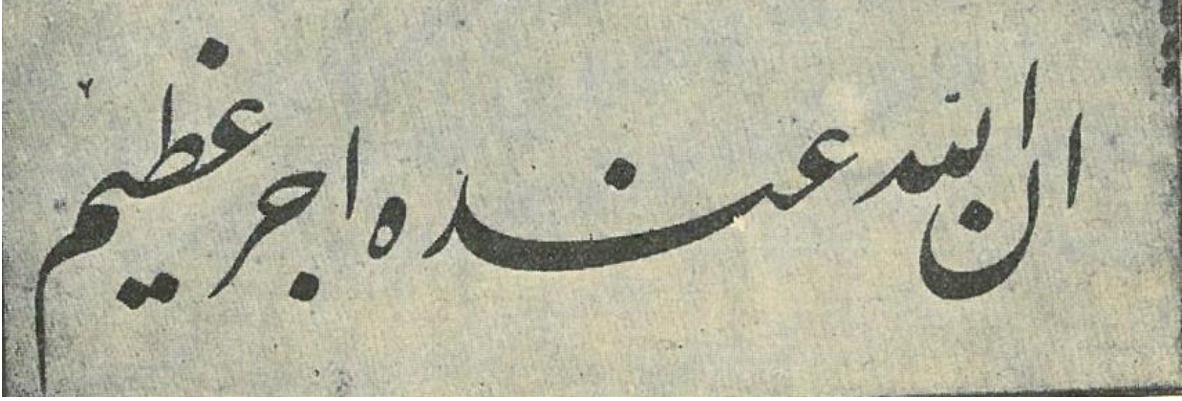 ان الله عنده اجر عظيم